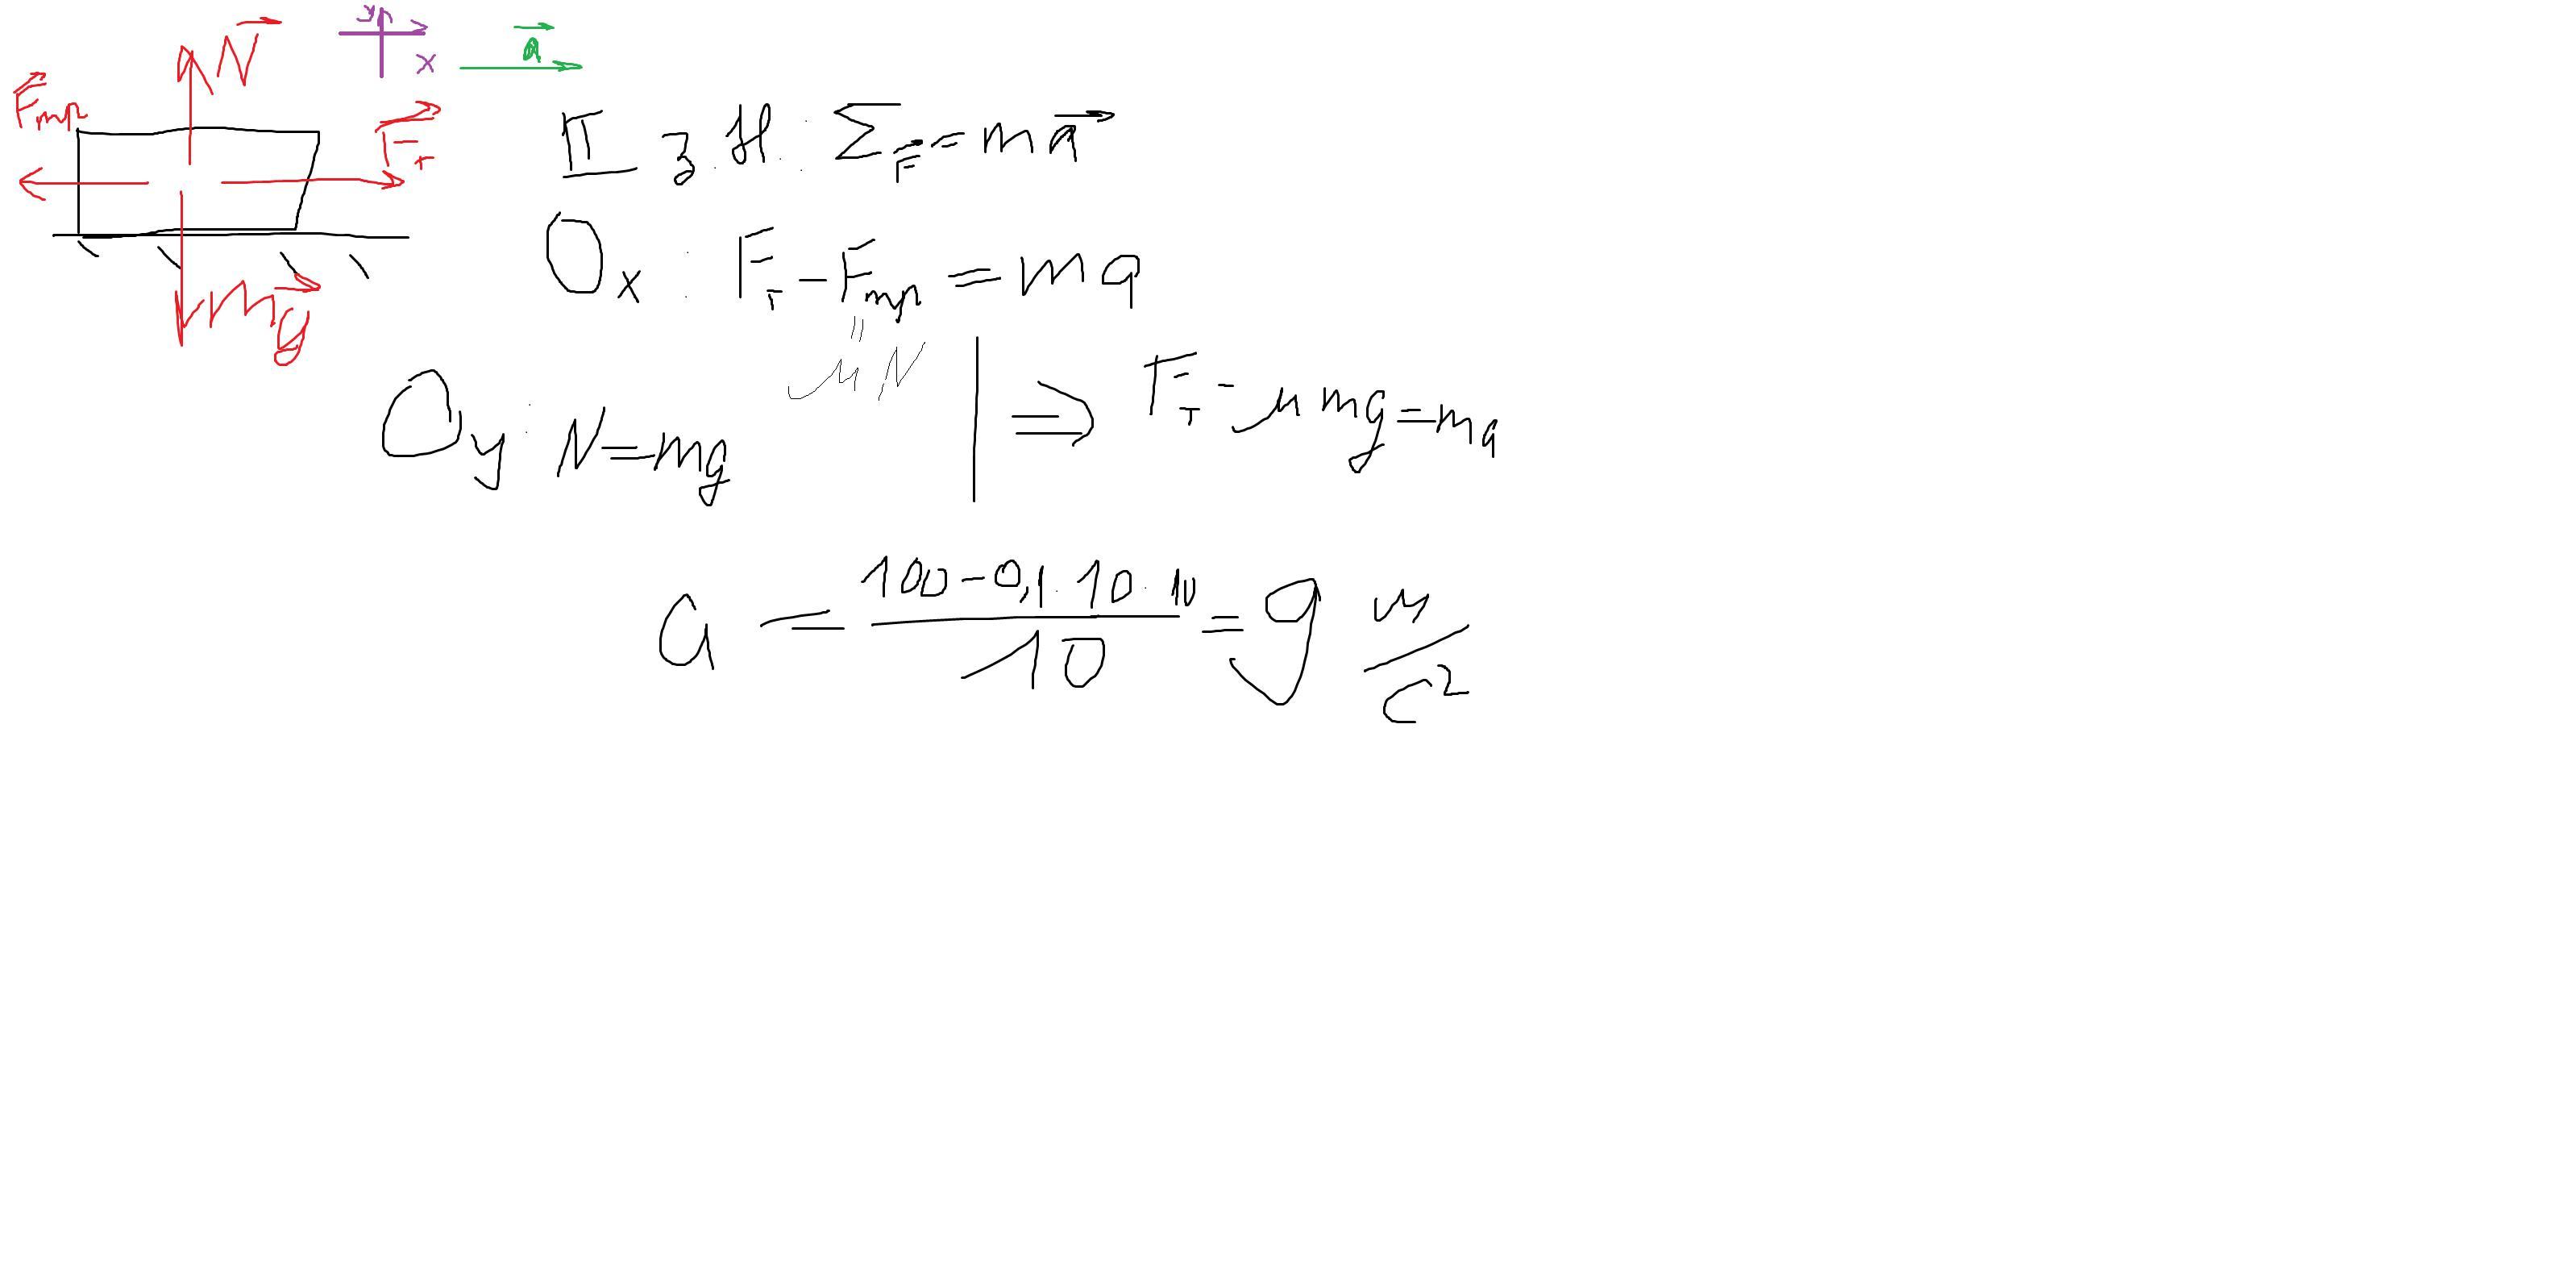 N y x a
Fтр Fт
II з.Н.: ΣF = ma
Ox: Fт - Fтр = ma
mg
"
μN
Oy: N = mg | ⇒ Fт - μmg = ma
a = (100 - 0,1 · 10 · 10) / 10 = 9 м/с²